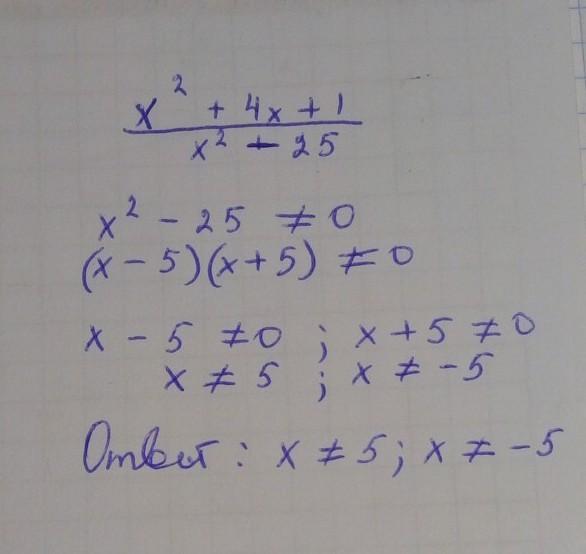 x² + 4x + 1
x² - 25
x² - 25 ≠ 0
(x - 5)(x + 5) ≠ 0
x - 5 ≠ 0 ; x + 5 ≠ 0
x ≠ 5 ; x ≠ -5
Ответ: x ≠ 5; x ≠ -5